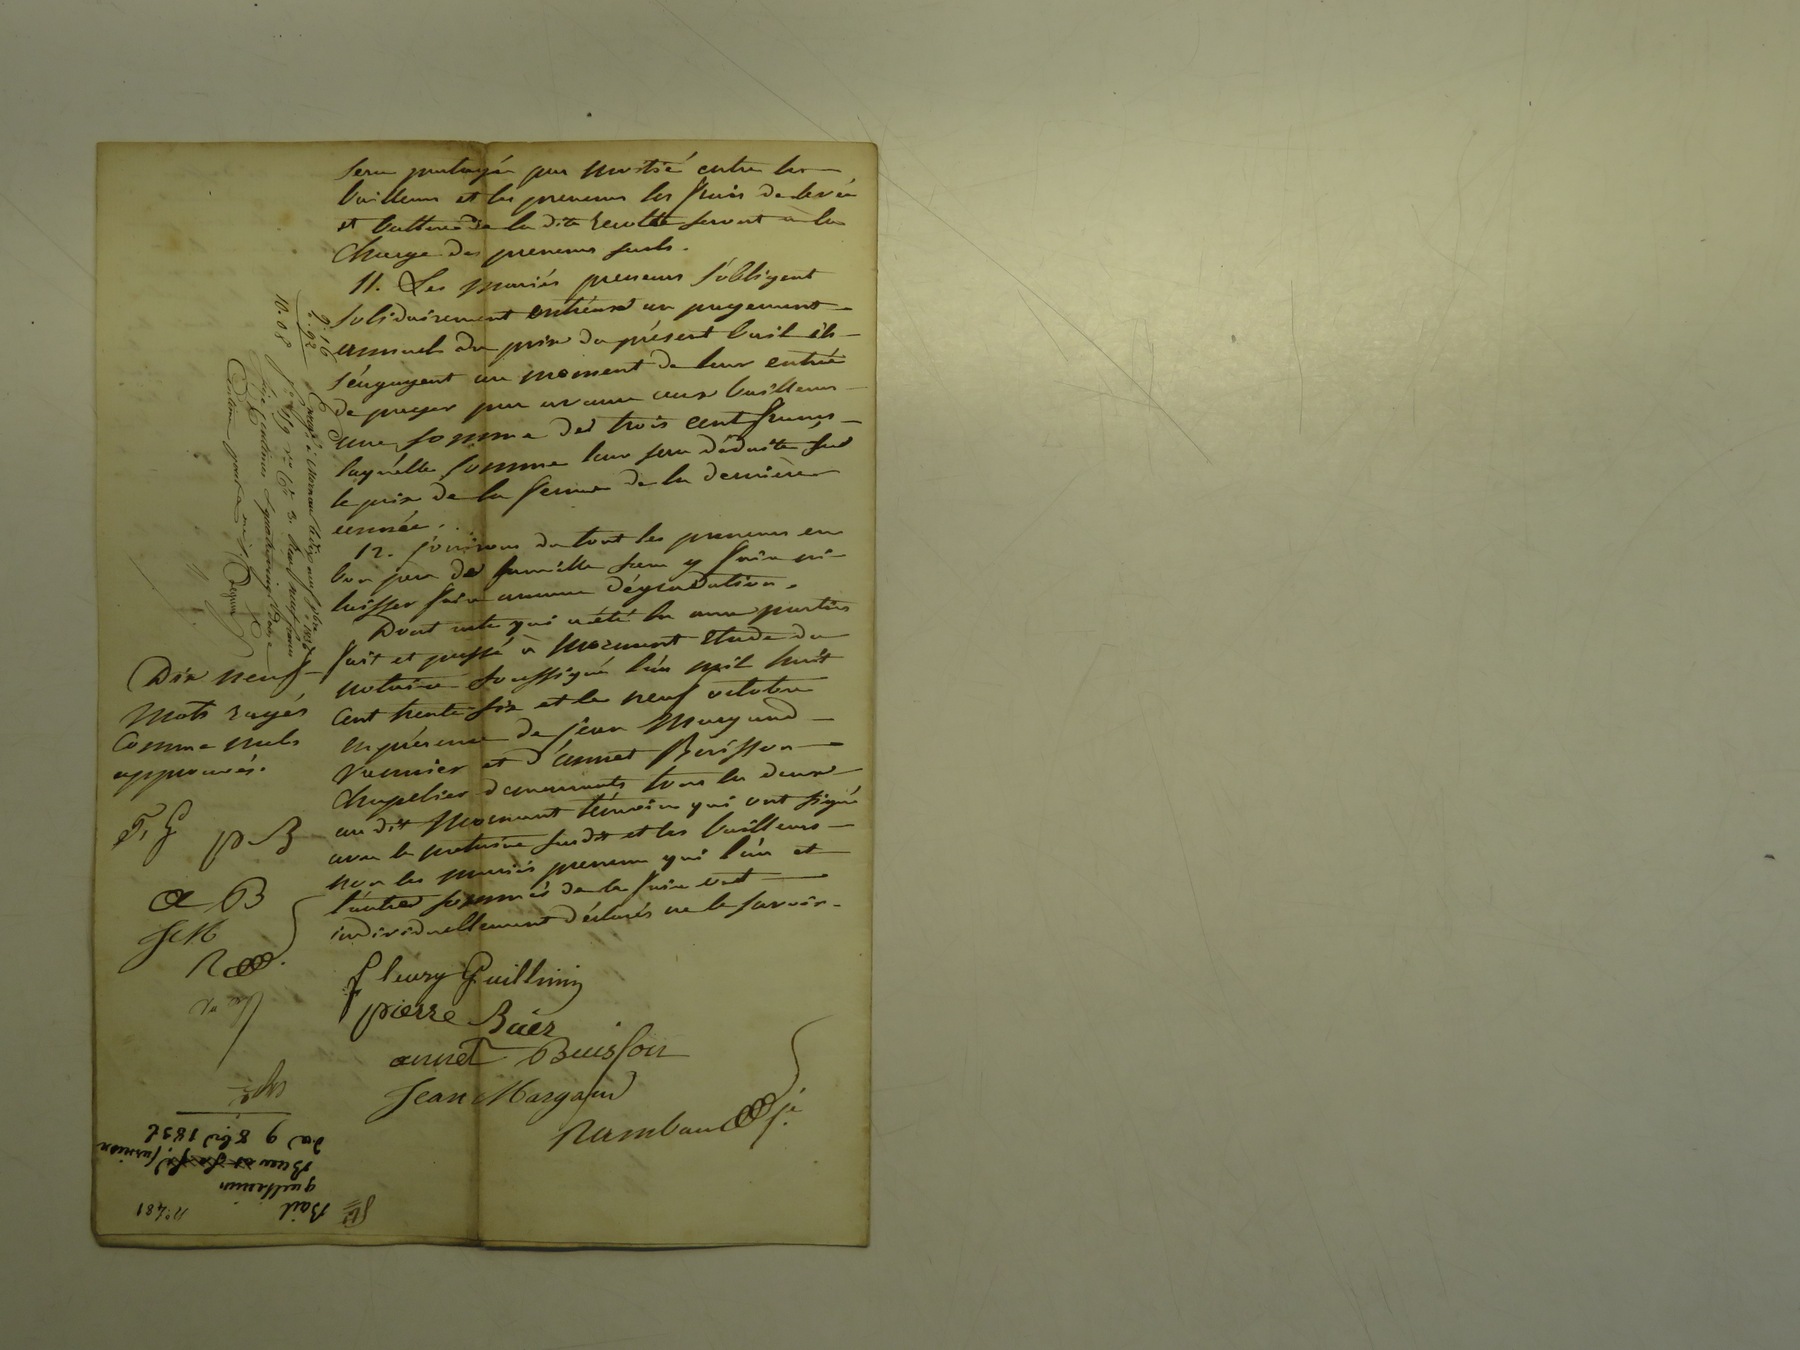 sera partagée par moitié entre les
bailleurs et les preneurs les frais de levée
et batture de la dite recolte seront à la
charge des preneurs seuls.
11. Les mariés preneurs s'obligent
solidairement entréeux au payement
annuel du prix du présent bail ils
s'engagent au moment de leur entrée
de payer par avance aux bailleurs
une somme de trois cent francs
laquelle somme leur sera déduite sur
le prix de la ferme de la dernière
année.
12. jouiront du tout les preneurs en
bon père de famille sans y faire ni
laisser faire aucune dégradation.
Dont acte qui a été lu aux parties
fait et passé à Mornant étude du
notaire soussigné l'an mil huit
cent trente six et le neuf octobre
en présence de jean Margand
vannier et d'annet Buisson
chapelier demeurants tous les deux
au dit Mornant témoins qui ont signé
avec le notaire susdit et les bailleurs
non les mariés preneurs qui l'un et
l'autre sommés de le faire ont
individuellement déclarés ne le savoir.
fleury Guillimin
pierre Buer
annet Buisson
Jean Margand
Rambaud
Dix neuf
mots rayés
comme nuls
approuvés.
F, G
p B
a B
J M
R
9.16
2.92
10.08
Bail
guillemin
du 9 8bre 1836
n° 481